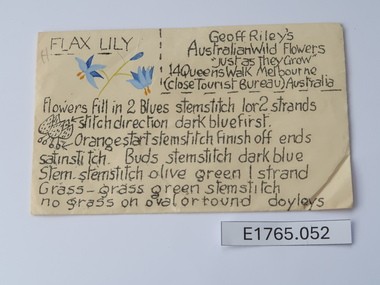 FLAX LILY
Geoff Riley's
Australian Wild Flowers
"Just as they Grow"
14 Queens Walk Melbourne
(Close Tourist Bureau) Australia
Flowers fill in 2 Blues stemstitch 1or 2 strands
stitch direction dark blue first.
Orange start stemstitch finish off ends
satinstitch. Buds stemstitch dark blue
Stem-stemstitch olive green 1 strand
Grass-grass green stemstitch
no grass on oval or round doyleys
E1765.052